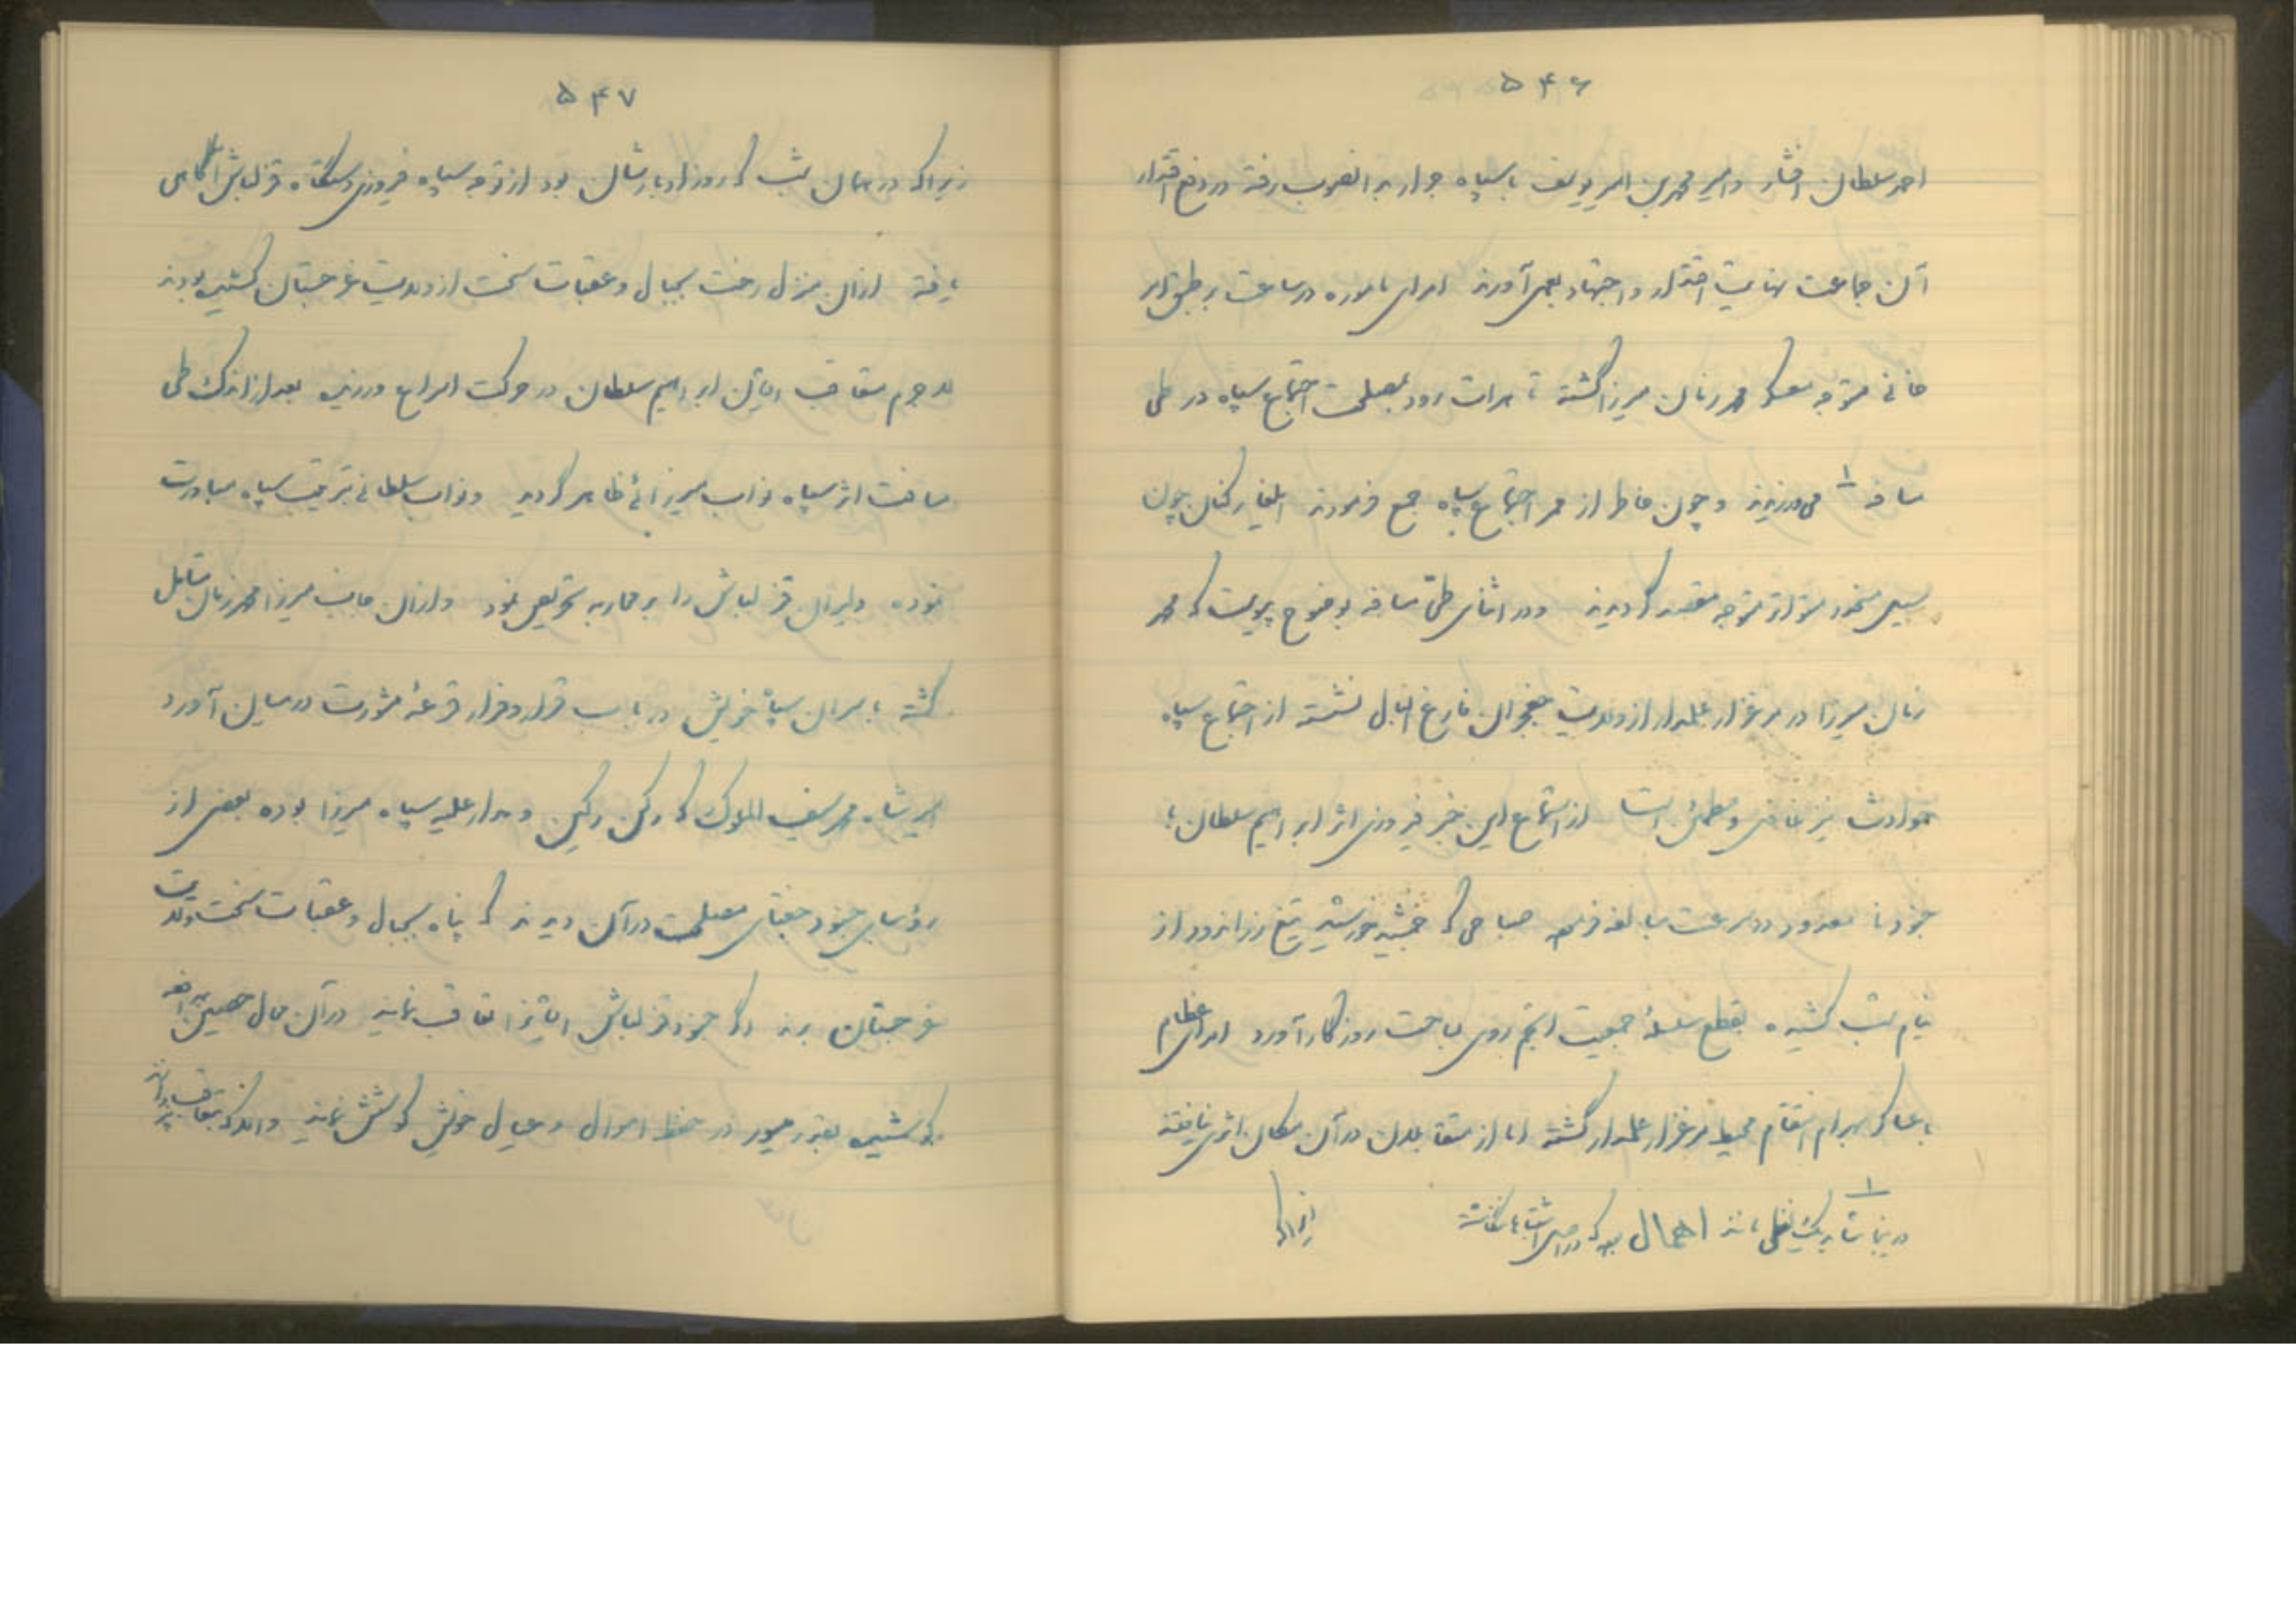 ۵۴۶
احمد سلطان افشار و امیر محمد بن امیر یوسف با سپاه جرار بدانصوب رفته در دفع اقتدار
آن جماعت نهایت اقتدار و اجتهاد بعمل آورند امرای نامبرده در ساعت بر طبق امر
خانی متوجه معسکر محمد زمان میرزا گشته تا هرات رود بمصلحت اجتماع سپاه در طی
مسافه ۱ می‌ورزیدند و چون خاطر از ممر اجتماع سپاه جمع فرمودند ایلغار کنان چون
سیل منحدر متوجه مقصد گردیدند و در اثنای طی مسافه بوضوح پیوست که محمد
زمان میرزا در مرغزار علمدار از ولایت فارغ البال نشسته از اجتماع سپاه
حوادث نیز غافل و مطمئن است از استماع این خبر فیروزی اثر ابراهیم سلطان با
جنود نامعدود در سرعت مبالغه فرمود صباحی که جمشید خورشید تیغ زراندود از
نیام شب کشیده بقطع سلسله جمعیت انجم روی بساحت روزگار آورد امرای عظام
با عساکر بهرام انتقام محیط مرغزار علمدار گشته اما از مقابلان در آن مکان اثری نیافتند
۱ در اینجا شاید یک لفظی مانند اهمال بوده که در اصل اشتباها نگاشته
زیرا که
۵۴۷
زیرا که در همان شب که روز ادبارشان بود از توجه سپاه فیروزی دستگاه قزلباش آگاهی
یافته از آن منزل رخت بجبال و عقبات سخت از ولایت غرجستان کشیده بودند
لاجرم متعاقب ایشان ابراهیم سلطان در حرکت اسراع ورزید بعد از اندک طی
مسافت اثر سپاه نواب میرزائی ظاهر گردید و نواب سلطانی بترتیب سپاه مبادرت
نموده دلیران قزلباش را بر محاربه تحریص نمود و از آن جانب میرزا محمد زمان مقابل
گشته با سران سپاه خویش در باب قرار و فرار قرعهٔ مشورت در میان آورد
امیر شاه محمد سیف الملوک که رکن رکین و مدار علیه سپاه میرزا بوده بعضی از
رؤسای جنود جغتای مصلحت در آن دیدند که پناه بجبال و عقبات سخت ولایت
غرجستان برند و اگر جنود قزلباش ایشانرا تعاقب نمایند در آن محال حصین بمدافعه
کوشیده بقدر میسور در حفظ اموال و عیال خویش کوشش نمایند و اندک بتعاقب پردازند